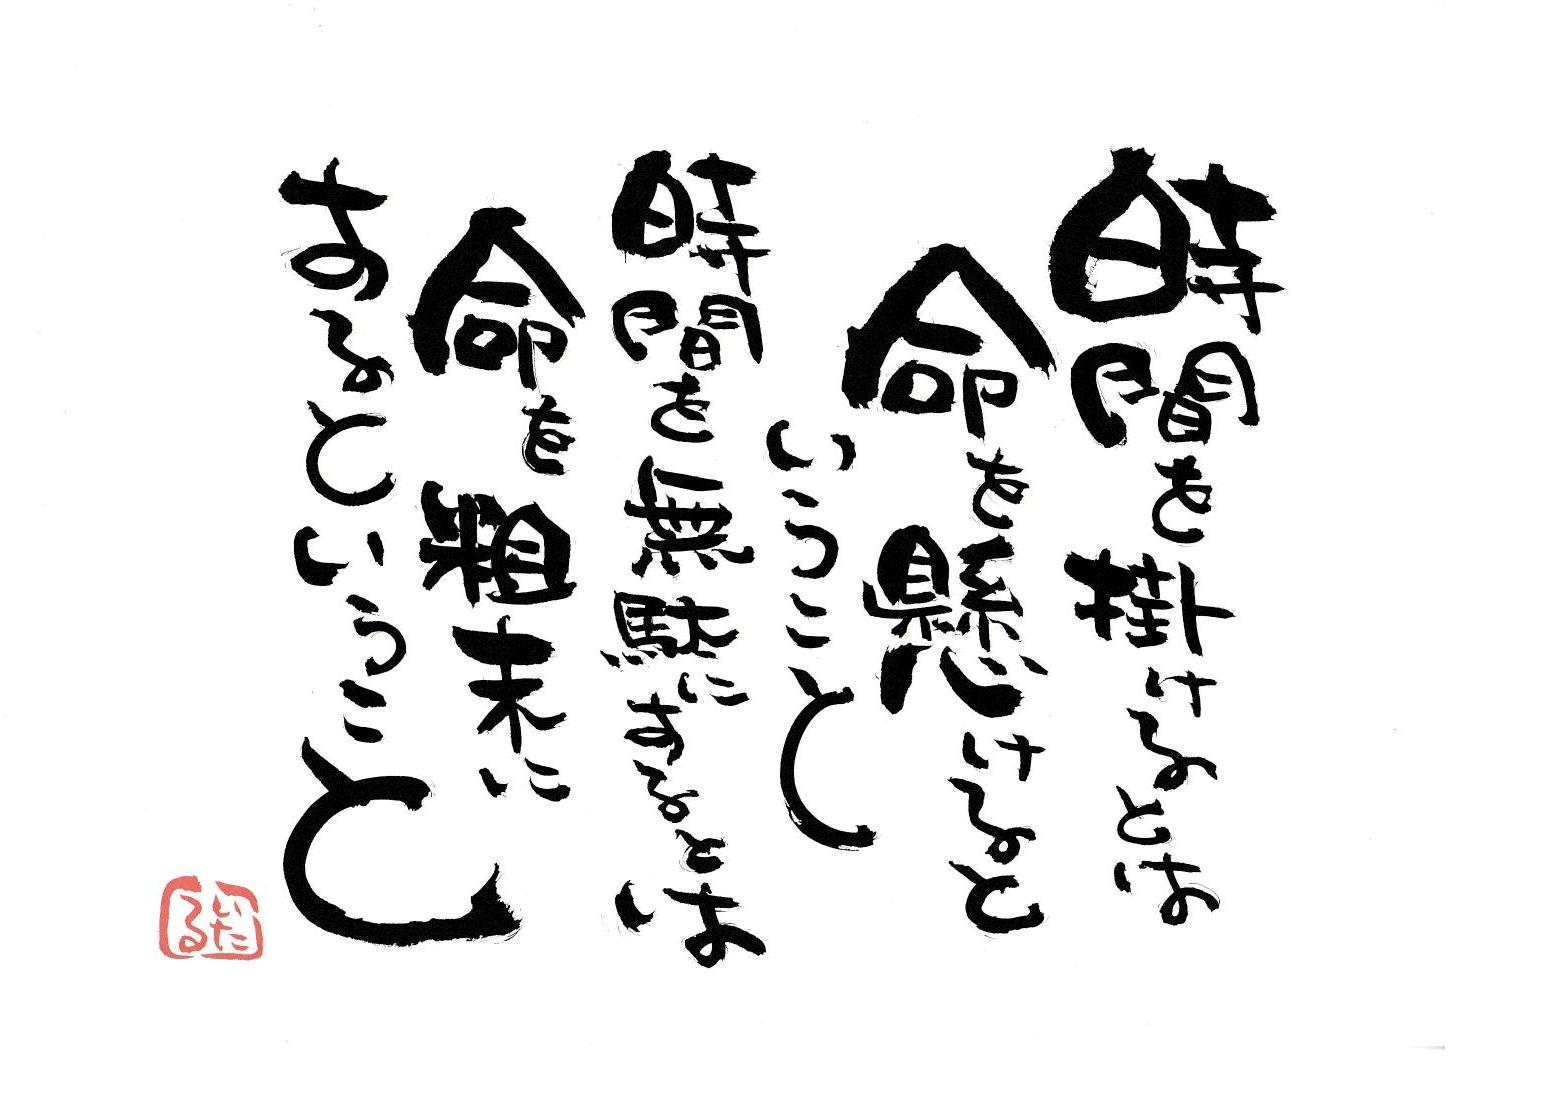 時間を掛けるとは
命を懸けると
いうこと
時間を無駄にするとは
命を粗末に
するということ
いたる